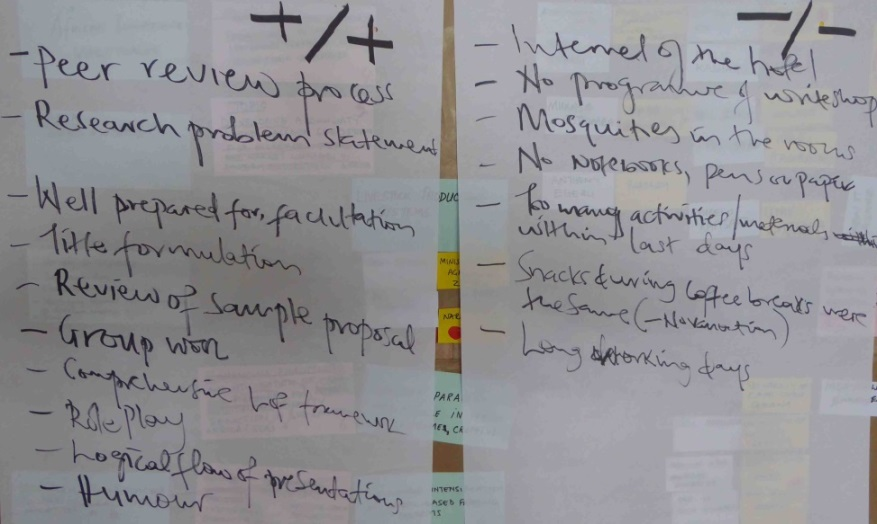 +/+
- Peer review process
- Research problem statement
- Well prepared for facilitation
- Title formulation
- Review of Sample proposal
- Group work
- Comprehensive framework
- Role Play
- Logical flow of presentations
- Humour
-/-
- Internet of the hotel
- No programme of writeshop
- Mosquities in the rooms
- No Notebooks, pens or paper
- Too many activities/materials
within last days
- Snacks during Coffee breaks were
the same (- No variation)
- Long working days
DUC
PARA
E IN